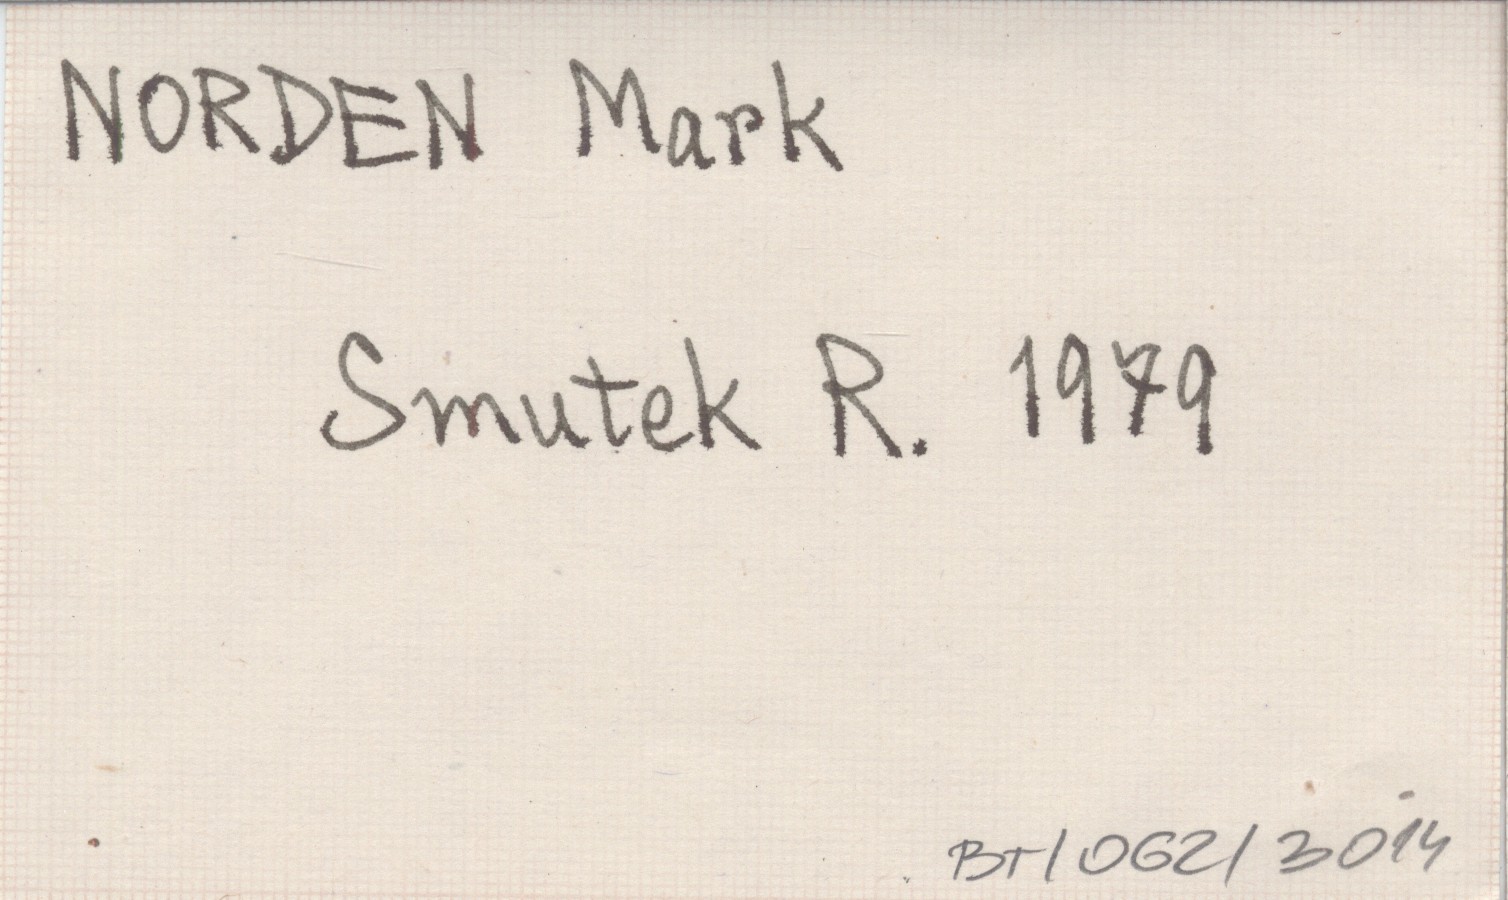 NORDEN Mark
Smutek R. 1979
BT/062/3014